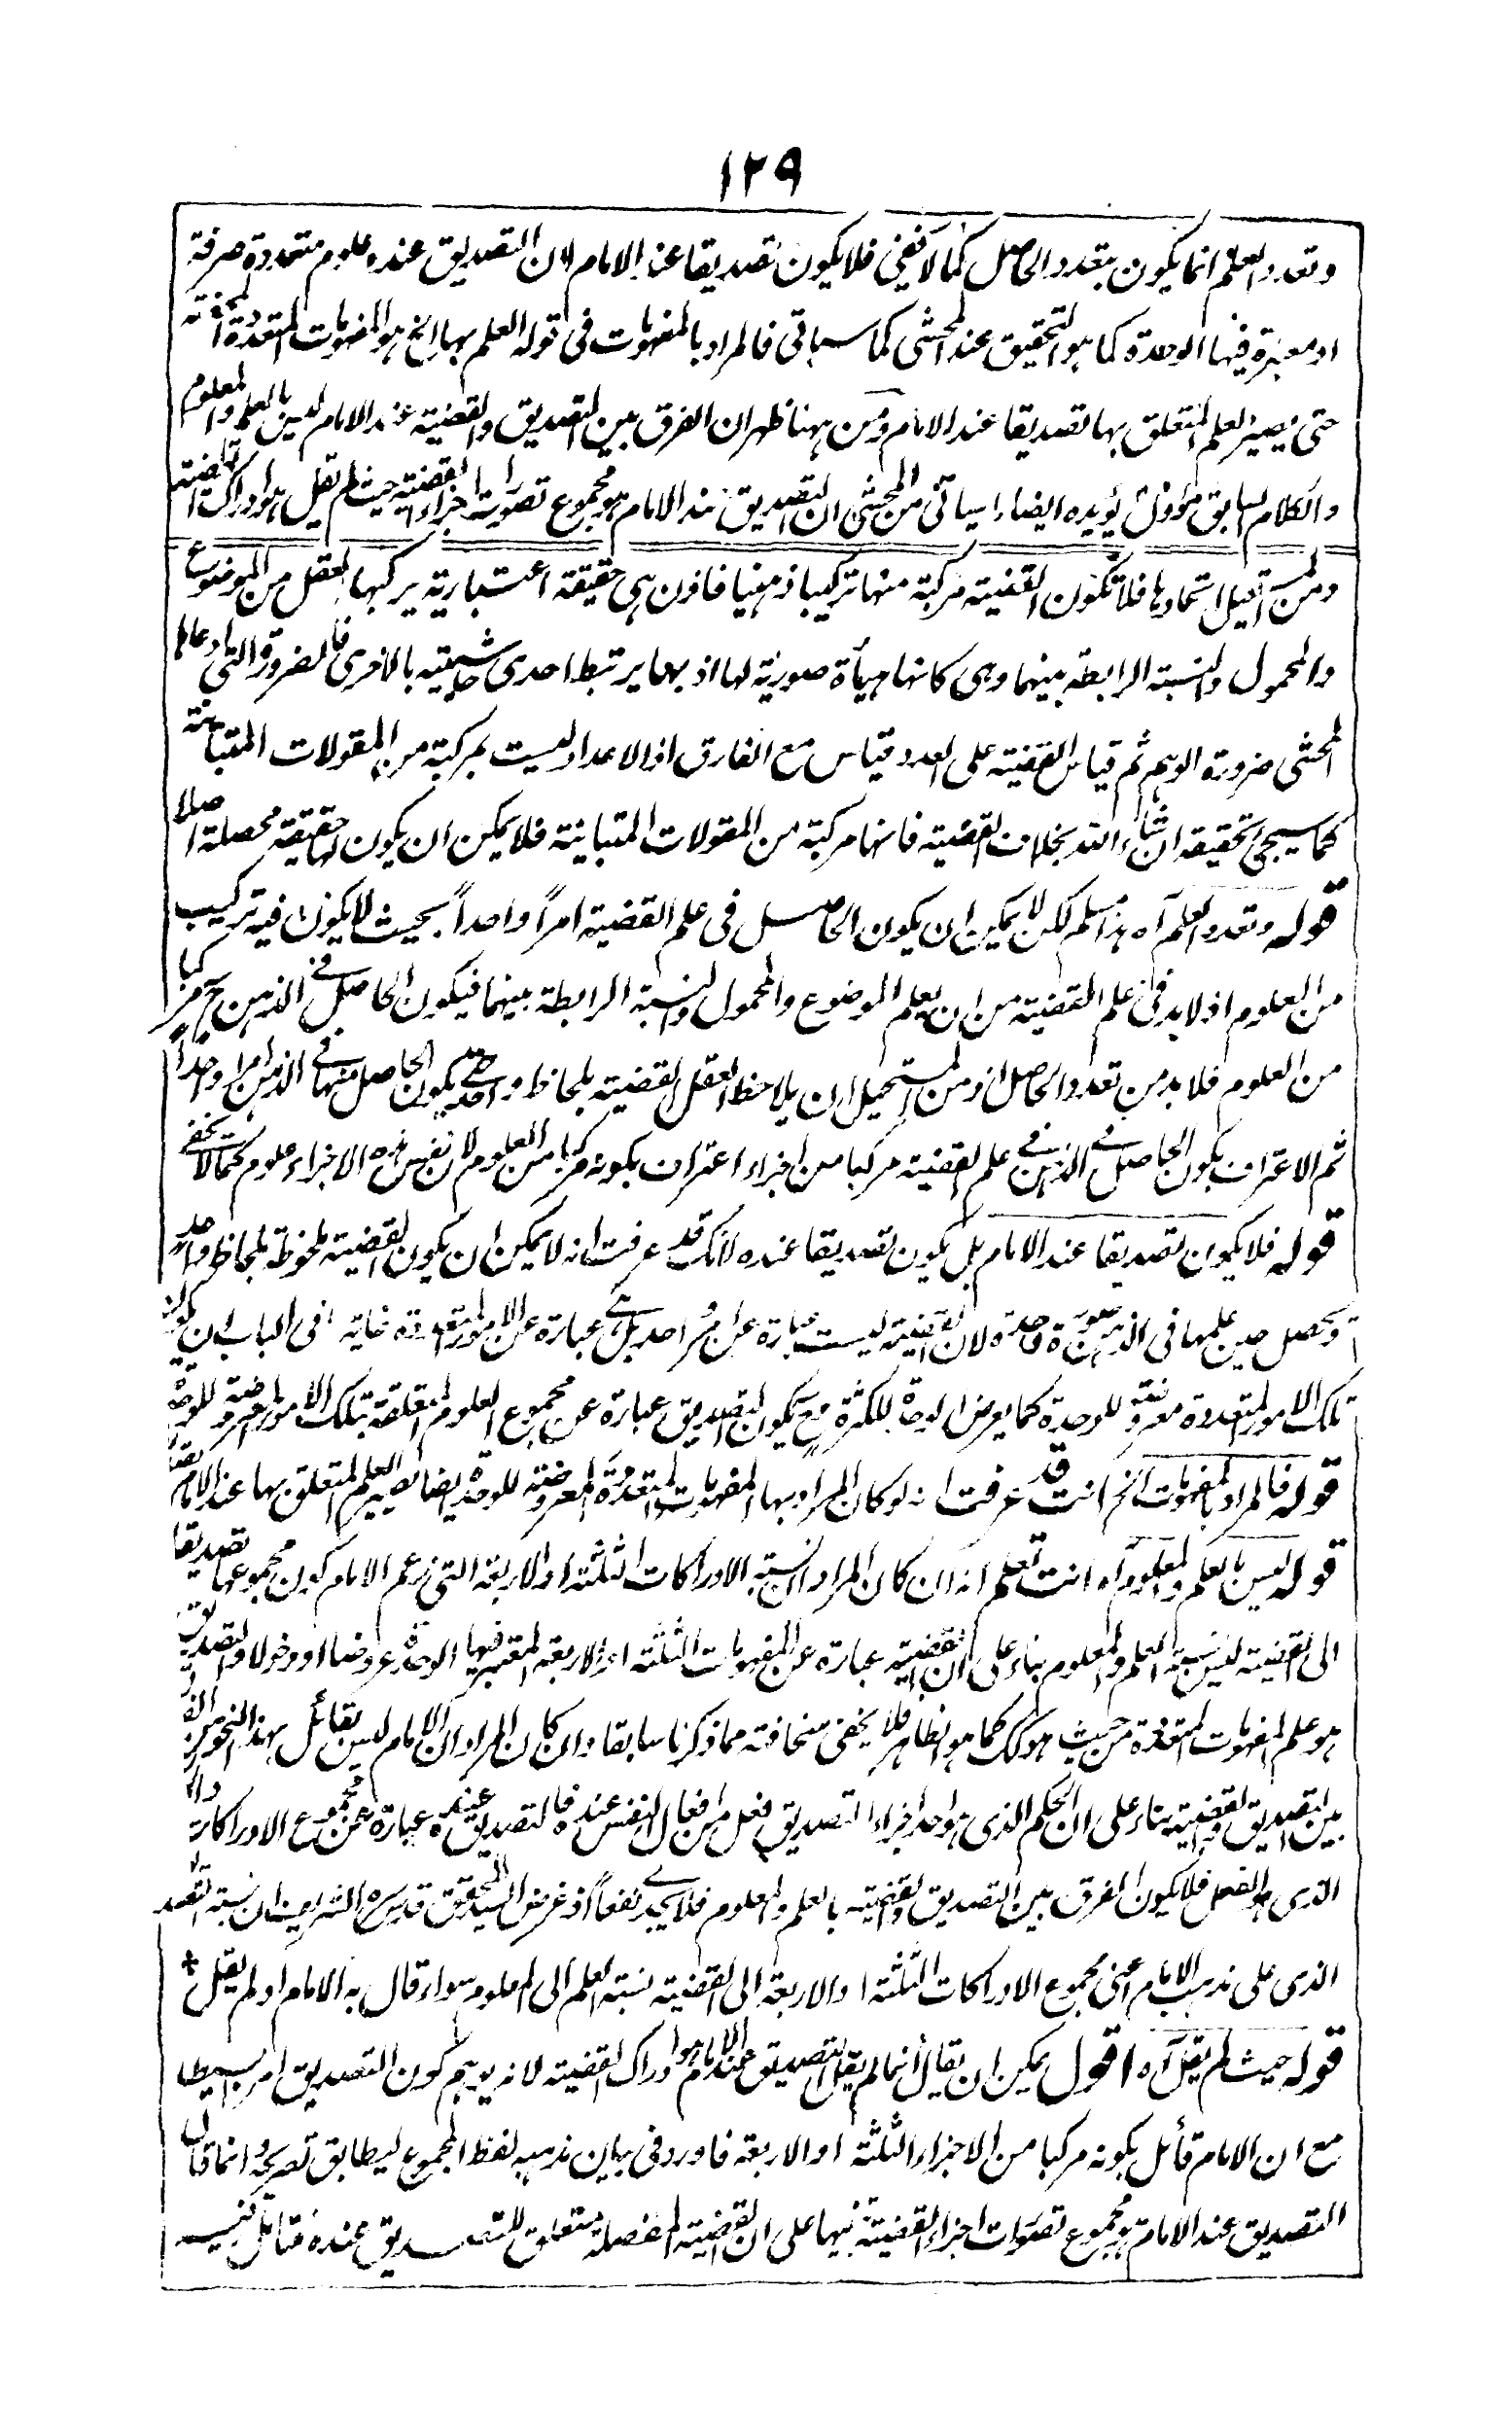 ١٢٩
وتعدد العلم انما يكون بتعدد الحاصل كما لا يخفى فلا يكون تصديقا عند الامام لان التصديق عنده علوم متعددة صرفة
او معتبرة فيها الوحدة كما هو التحقيق عند المحشى كما سياتى فالمراد بالمفهومات فى قوله العلم بها الخ هو المفهومات المتعددة
حتى يصير العلم المتعلق بها تصديقا عند الامام ومن ههنا ظهر ان الفرق بين التصديق والقضية عند الامام ليس بالعلم والمعلوم
والكلام السابق مؤول يؤيده ايضا ما سياتى من المحشى ان التصديق عند الامام هو مجموع تصورات اجزاء القضية حيث لم يقل هو ادراك القضية
ومن المستحيل اتحادها فلا تكون القضية مركبة منها تركيبا ذهنيا فاذن هى حقيقة اعتبارية يركبها العقل من الموضوع
والمحمول والنسبة الرابطة بينهما وهى كانها هيأة صورية لها اذ بها يرتبط احدى حاشيتيه بالاخرى فالضرورة التى ادعاها
المحشى ضرورة الوهم ثم قياس القضية على العدد قياس مع الفارق اذ الاعداد ليست بمركبة من المقولات المتباينة
كما سيجئ تحقيقه ان شاء الله بخلاف القضية فانها مركبة من المقولات المتباينة فلا يمكن ان يكون لها حقيقة محصلة اصلا
قوله وتعدد العلم آه هذا مسلم لكن لا يمكن ان يكون الحاصل فى علم القضية امراً واحداً بحيث لا يكون فيه تركيب
من العلوم اذ لابد فى علم القضية من ان يعلم الموضوع والمحمول والنسبة الرابطة بينهما فيكون الحاصل فى الذهن ح مركبا
من العلوم فلا بد من تعدد الحاصل اذ من المستحيل ان يلاحظ العقل القضية بلحاظ واحد حتى يكون الحاصل منها فى الذهن امرا واحداً
ثم الاعتراف بكون الحاصل فى الذهن فى علم القضية مركبا من اجزاء اعتراف بكونه مركبا من العلوم لان نفس هذه الاجزاء علوم كما لا يخفى
قوله فلا يكون تصديقا عند الامام بل يكون تصديقا عنده لانك قد عرفت انه لا يمكن ان يكون القضية ملحوظة بلحاظ واحد
ويحصل حين علمها فى الذهن صورة واحدة لان القضية ليست عبارة عن امر واحد بل هى عبارة عن الامور المتعددة غاية ما فى الباب ان يكون
تلك الامور المتعددة معروضة للوحدة كما يعرض الوحدة للكثرة فح يكون التصديق عبارة عن مجموع العلوم المتعلقة بتلك الامور المعروضة للوحدة
قوله فالمراد بالمفهومات الخ انت قد عرفت انه لو كان المراد بها المفهومات المتعددة المعروضة للوحدة ايضا يصير العلم المتعلق بها عند الامام تصديقا
قوله ليس بالعلم والمعلوم آه انت تعلم انه ان كان المراد ان نسبة الادراكات الثلثة او الاربعة التى زعم الامام كون مجموعها تصديقا
الى القضية ليس نسبة العلم والمعلوم بناء على ان القضية عبارة عن المفهومات الثلثة او الاربعة المعتبر فيها الوحدة عروضا او دخولا والتصديق
هو علم المفهومات المتعددة من حيث هو كك كما هو الظاهر فلا يخفى سخافته مما ذكرنا سابقا وان كان المراد ان الامام ليس بقائل بهذا النحو من الفرق
بين التصديق والقضية بناء على ان الحكم الذى هو احد اجزاء التصديق فعل من افعال النفس عنده فالتصديق عنده عبارة عن مجموع الادراكات
الذى هو الفعل فلا يكون الفرق بين التصديق والقضية بالعلم والمعلوم فلا يجدى نفعاً اذ غرض السيد المحقق قدس سره الشريف ان نسبة التصديق
الذى على مذهب الامام اعنى مجموع الادراكات الثلثة او الاربعة الى القضية نسبة العلم الى المعلوم سواء قال به الامام او لم يقل
قوله حيث لم يقل آه اقول يمكن ان يقال انما لم يقل التصديق عند الامام هو ادراك القضية لانه يوهم كون التصديق امرا بسيطا
مع ان الامام قائل بكونه مركبا من الاجزاء الثلثة او الاربعة فاورد فى بيان مذهبه لفظ المجموع ليطابق تصريحه وانما قال
التصديق عند الامام هو مجموع تصورات اجزاء القضية تنبيها على ان القضية المفصلة متعلق للتصديق عنده فتامل فيه